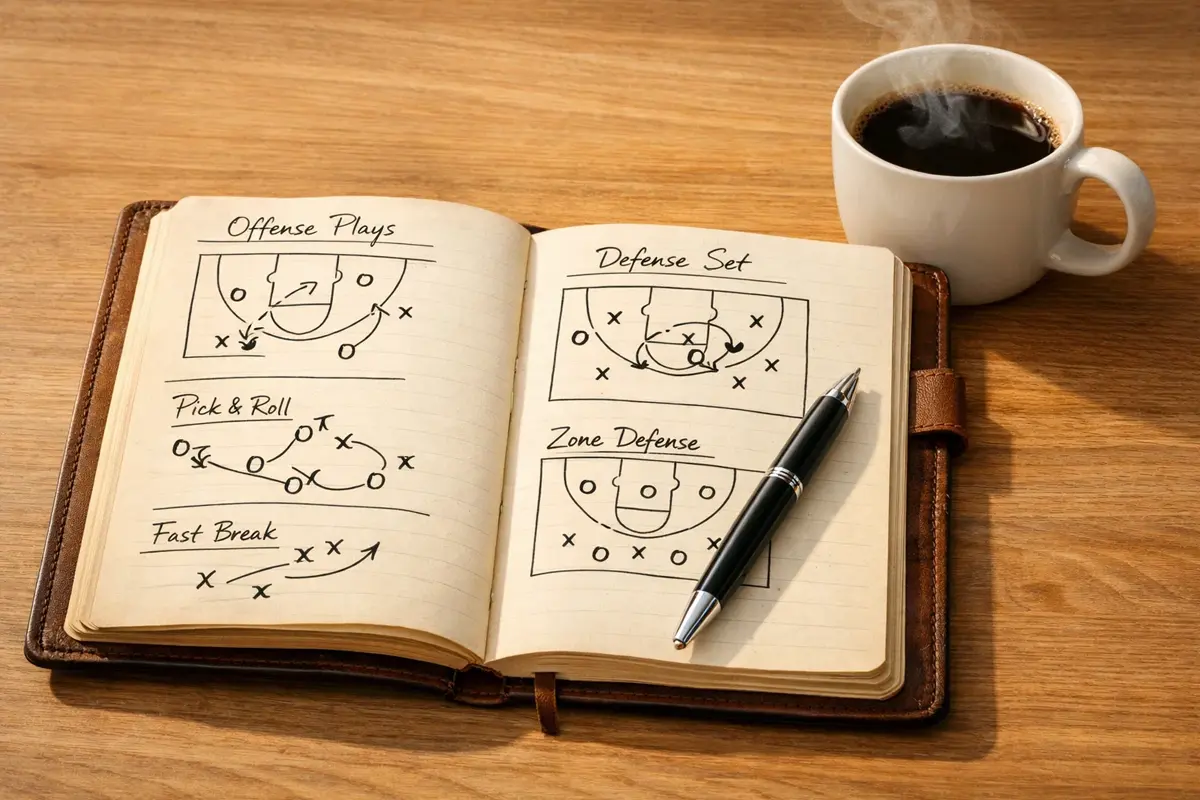 Offense Plays
Pick & Roll
Fast Break
Defense Set
Zone Defense